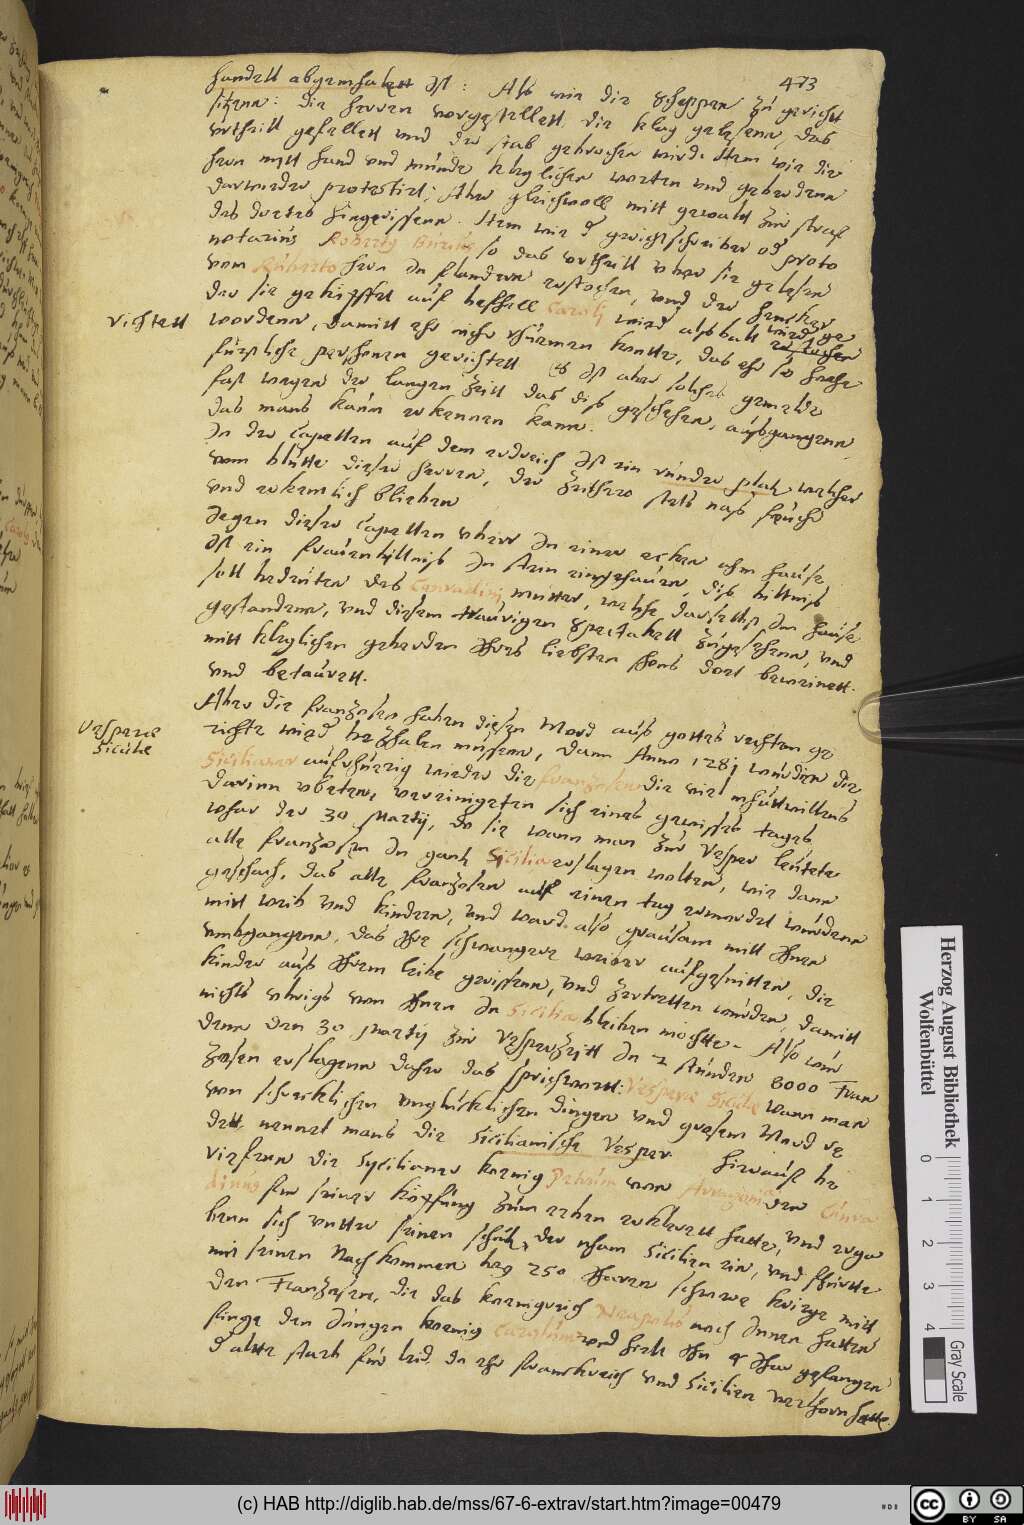 473
handelt abgemhalett Ist: Alß wie die Scheppen zu gericht
sitzenn: die herren vorgestellett, die klag gelesenn, das
vrtheill gefallett vnd der stab gebrochen wird. Item wie die
hern mitt hand vnd munde kleglichen worten vnd geberdenn
darwieder protestirt, Aber gleichwoll mitt gewalt zur straf
des dortes hingerissenn. Item wie d gerichtschreiber od proto
notarius Roberty so das vrtheill vber sie gelesen
vom Ruberto hern In flandern erstochen, vnd der hencker
der sie gekopffet auf beffhell Caroli wird alßbalt
richtett
wordenn, damitt ehr nicht rhümen kontte, das ehr so hohe
fürstliche personen gerichtett Es Ist aber solches gemelde
fast wegen der langen Zeitt das diß geschehen, außgangenn,
das mans kaum erkennen kann.
In der Capellen auf dem erdreich Ist ein runder platz welcher
vom blutte dieser herren, der Zeithero stets naß feucht
vnd erkentlich blieben
Jegen dieser Capellen vber In einer ecken ahm hause
Ist ein frauenbiltniß In stein eingehauen, diß biltniß
soll bedeuten des Conradini mutter, welche daselbst Im hause
gestandenn, vnd diesem traurigen Spectakell zugesehenn, vnd
mitt kleglichen geberden Ihres liebsten sohns dort beweinett
vnd betaurett.
Aber die franzosen haben diesen Mord auß gottes rechten ge
Vesperae
Siculae
richte wied bezhalen müssenn, dann Anno 1281 wurden die
Sicilianer aufrhürig wieder die franzosen die viel mhuttwillens
darinn vbeten, vereinigeten sich eines gewisses tages
wahr der 30 Martij, do sie wann man zur Vesper leutete
alle franzosen In gantz Sicilia erslagen wolten, wie dann
geschach, das alle franzosen auf einen tag ermordet wurdenn
mitt weib vnd kindern, vnd ward also grausam mitt Ihnen
vmbgangenn, das Ihre schwangere weiber aufgesnitten, die
kinder auß Ihrem leibe gerissenn, vnd zertretten wurden, damitt
nichts vbrigs von Ihnen In Sicilia bleiben mochtte. Also wur
denn den 30 Martij zur Vesperzeitt In 2 stunden 8000 Fran
zosen erslagenn daher das sprichwort: Vesperae Siculae wann man
von schrecklichen vnglucklichen dingen vnd grosem Mord re
dett, nennet mans die Sicilianische Vesper. Hierauff be
rieffen die Sycilianer koenig Petrum von Arragonia den Conra
dinus fur seiner köpffung zum erben erklerett hatte, vnd erga
benn sich vntter seinen schutz, der nham Sicilien ein, vnd fhurtte
mitt seinen Nachkommen bey 250 Iharen schwere kriege mitt
den Franzosen, die das koenigreich Neapolis noch Innen hatten
finge den Jungen koenig Carolum vnd hielt Ihn 4 Ihar gefangen
d altte starb für leid, do ehr franckreich vnd Sicilien verlhorn hatte.
Herzog August Bibliothek
Wolfenbüttel
0 1 2 3 4
Gray Scale
(c) HAB http://diglib.hab.de/mss/67-6-extrav/start.htm?image=00479
cc BY SA